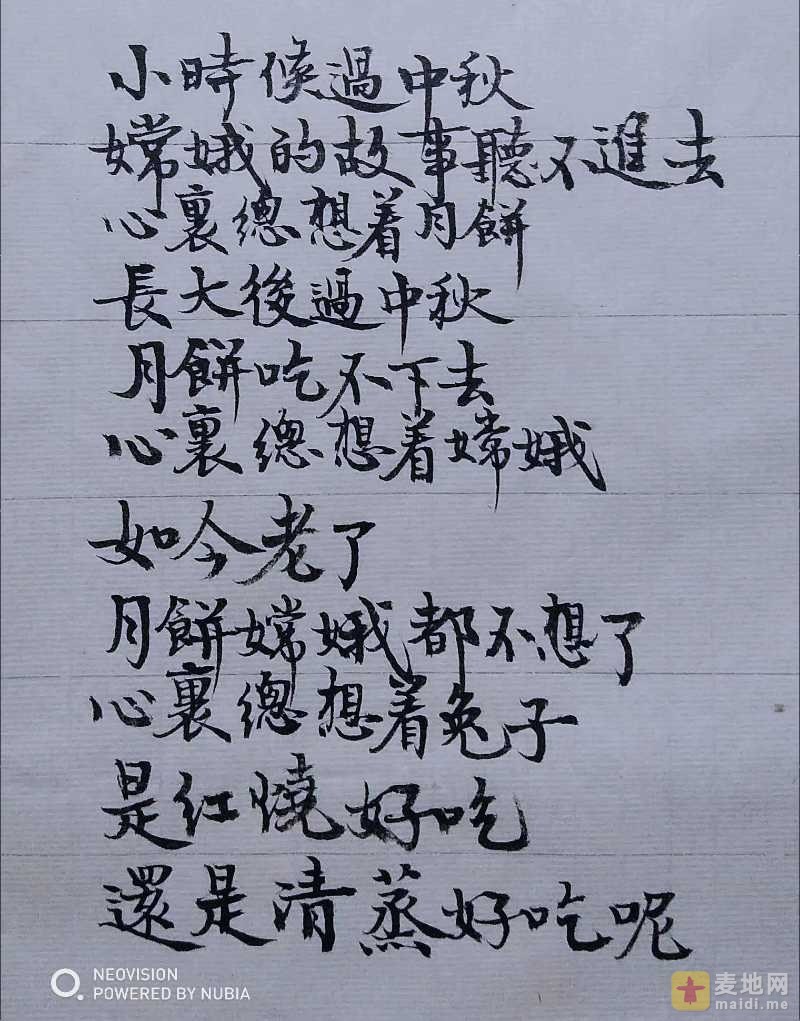 小時候過中秋
嫦娥的故事聽不進去
心裏總想着月餅
長大後過中秋
月餅吃不下去
心裏總想着嫦娥
如今老了
月餅嫦娥都不想了
心裏總想着兔子
是红燒好吃
還是清蒸好吃呢
NEOVISION
POWERED BY NUBIA
麦地网
maidi.me